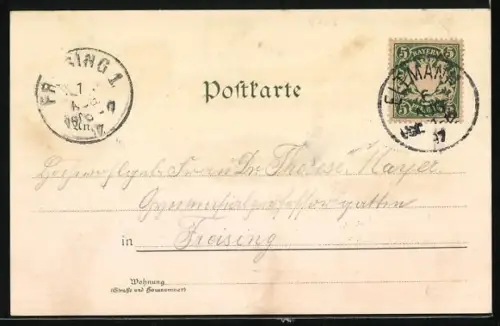 FREISING 1.
Postkarte
5 BAYERN 5
ELTMANN
Frau Dr. Therese Mayer
Gymnasialprofessorsgattin
in Freising
Wohnung
(Straße und Hausnummer)